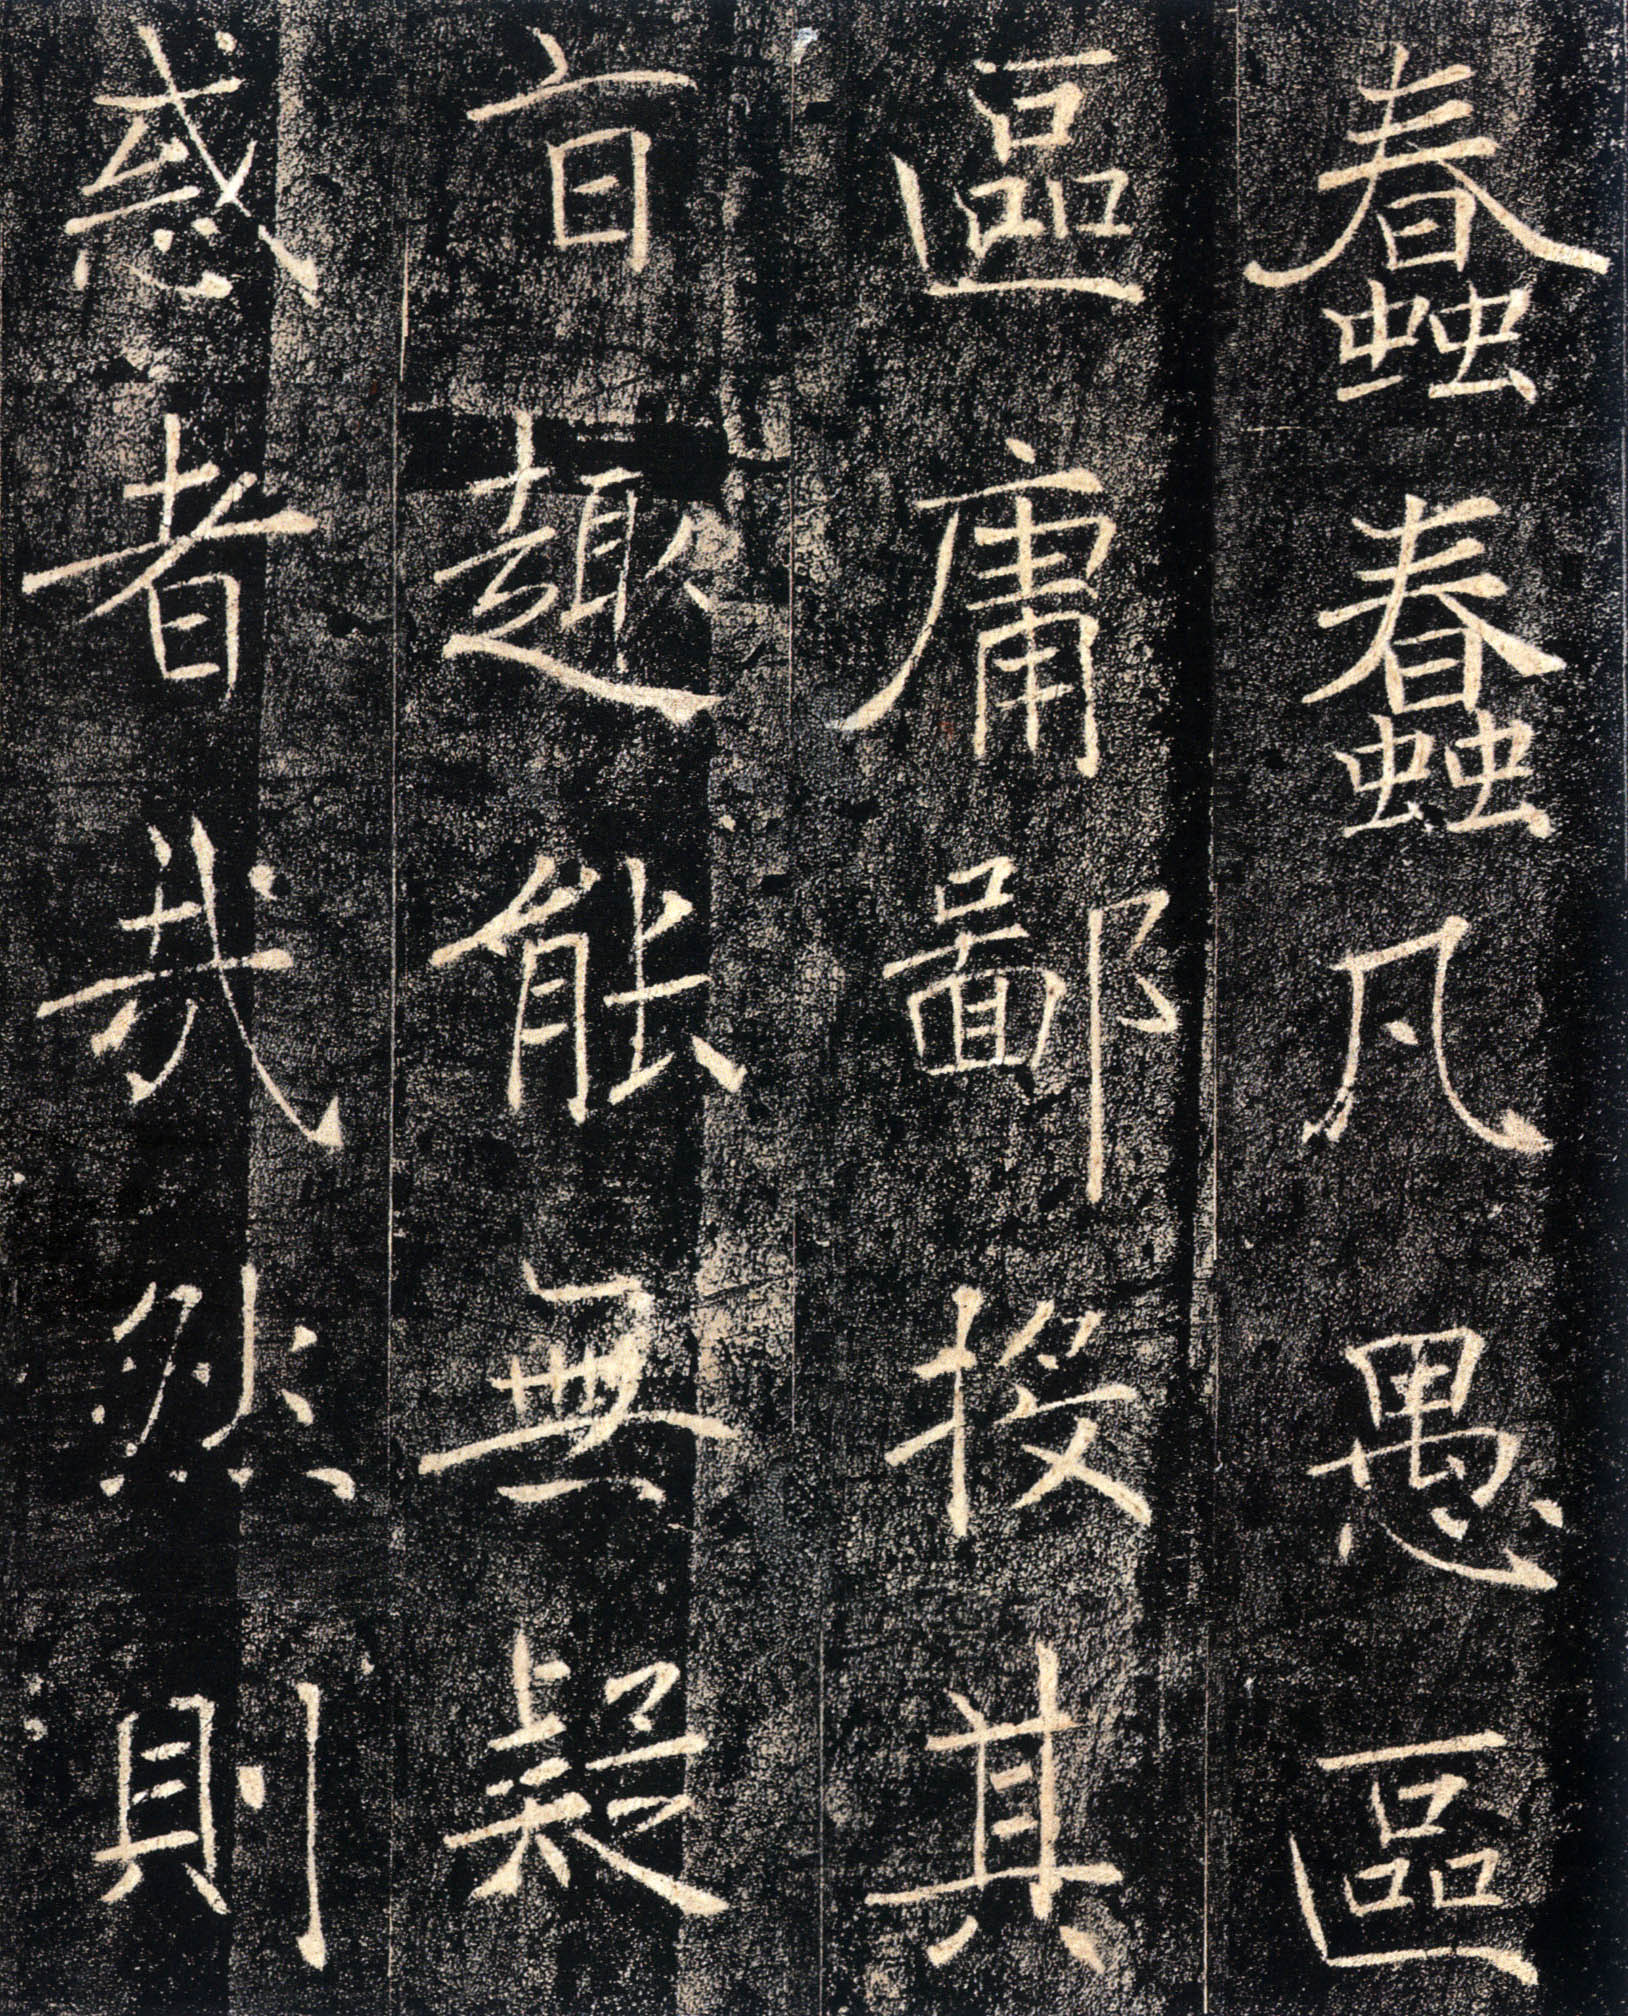 蠢蠢凡愚區
區庸鄙投其
旨趣能無疑
惑者哉然則